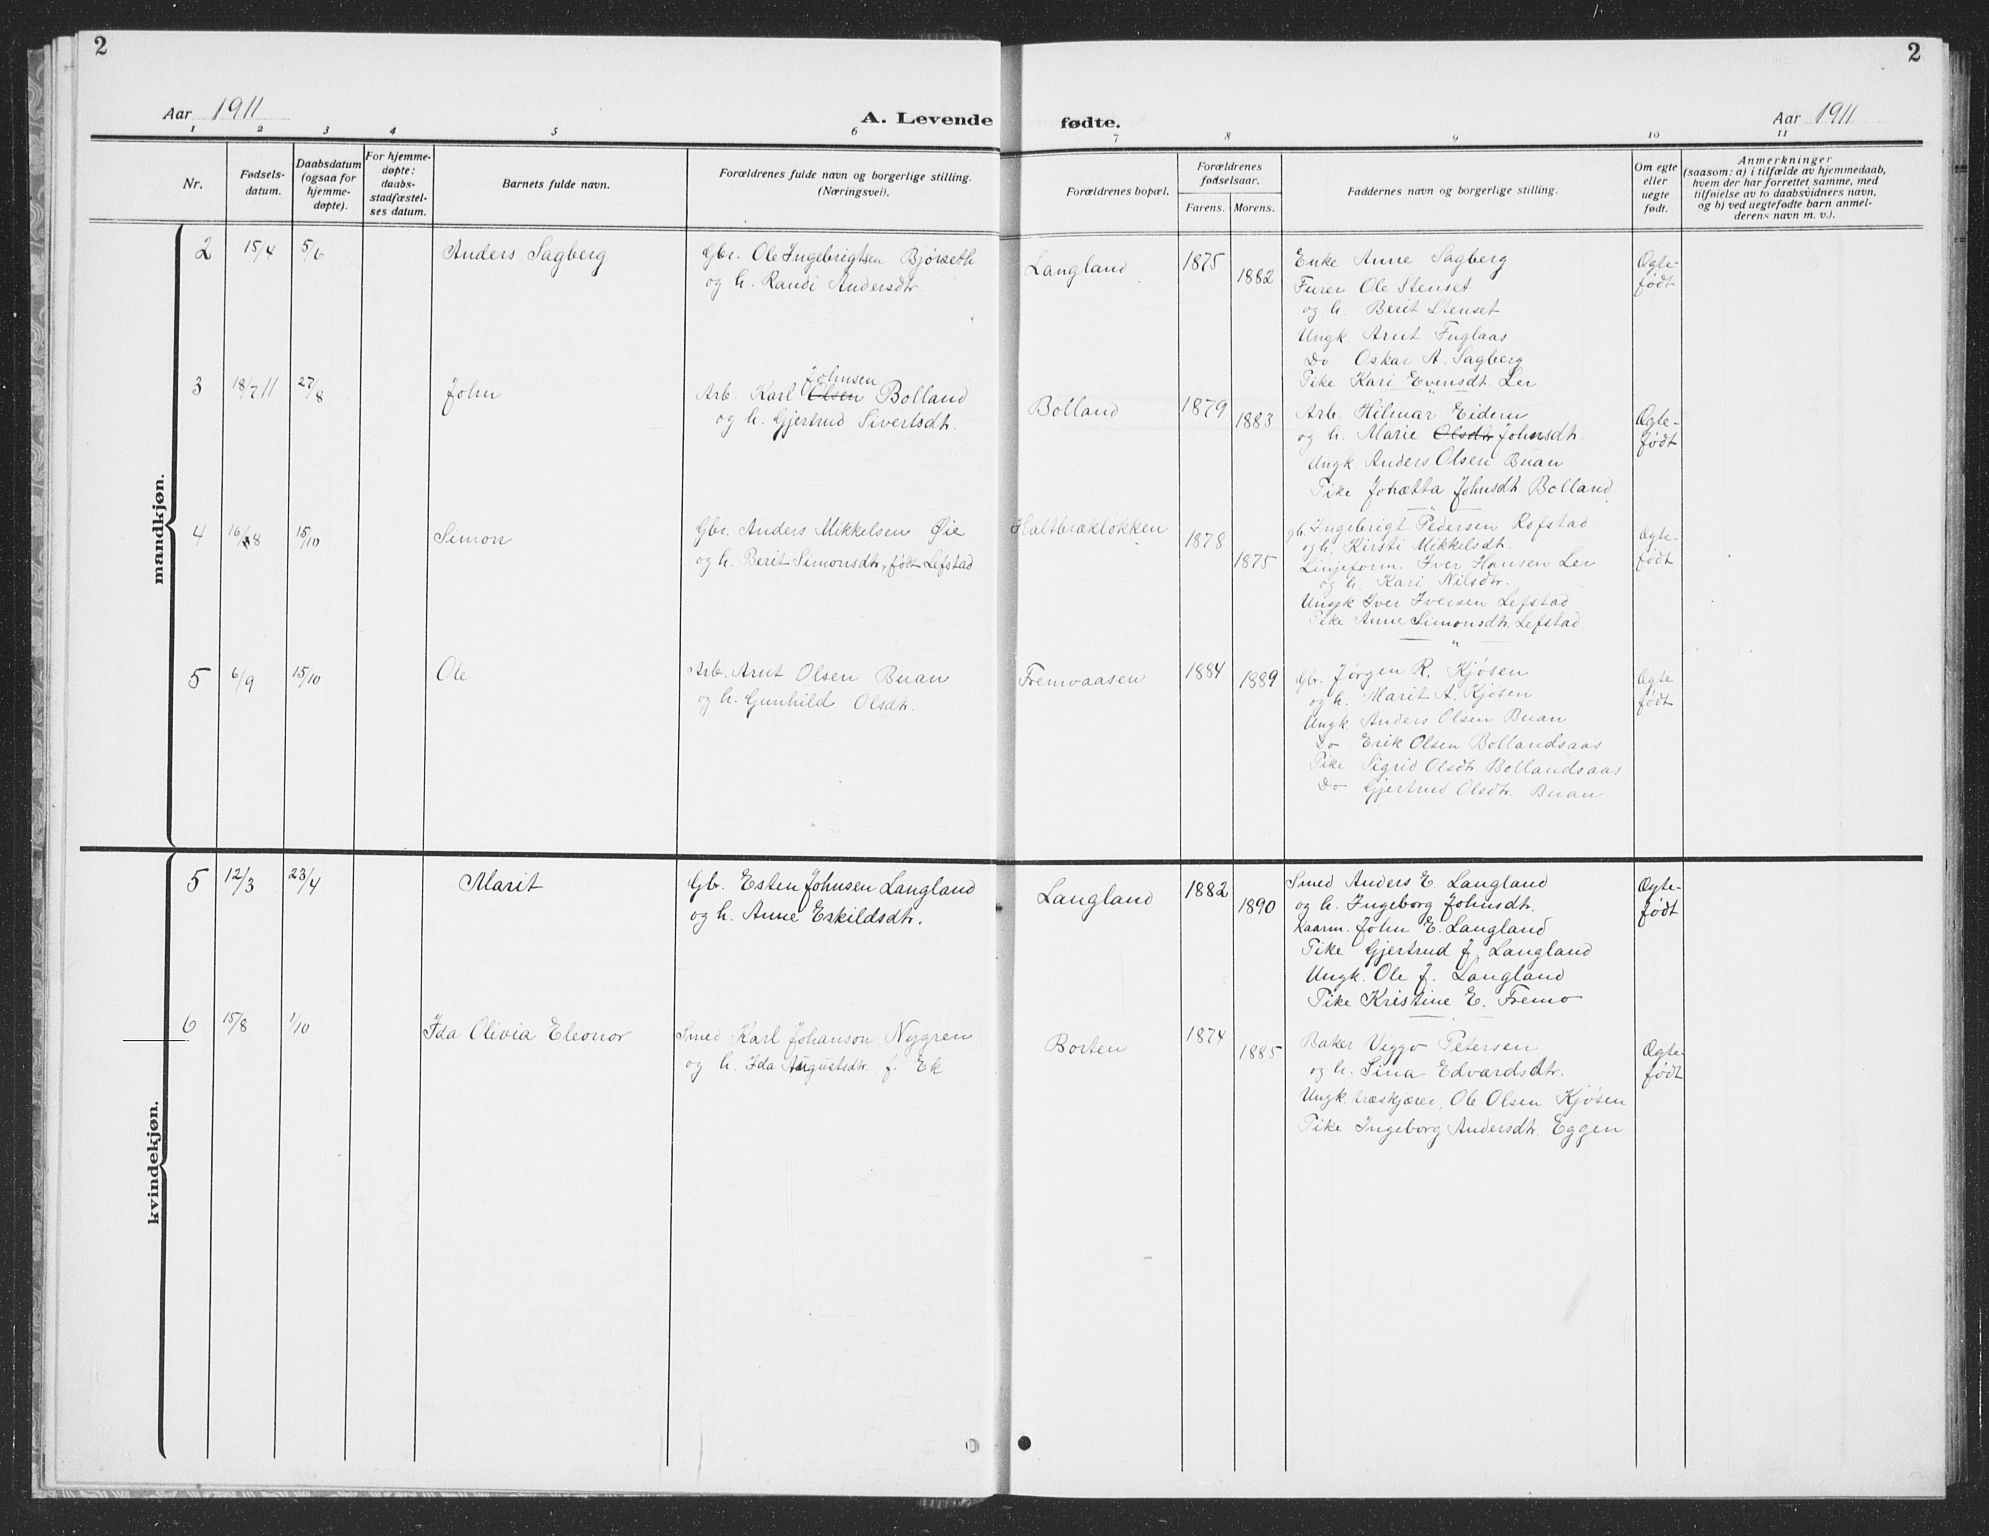 2
2
Aar 1911
A. Levende fødte.
Aar 1911
1 2 3 4 5 6 7 8 9 10 11
Nr.
Fødsels-
datum.
Daabsdatum
(ogsaa for
hjemme-
døpte).
For hjemme-
døpte:
daabs-
stadfæstel-
ses datum.
Barnets fulde navn.
Forældrenes fulde navn og borgerlige stilling.
(Næringsvei).
Forældrenes bopæl.
Forældrenes
fødselsaar.
Farens. Morens.
Faddernes navn og borgerlige stilling.
Om egte
eller
uegte
født.
Anmerkninger
(saasom: a) i tilfælde av hjemmedaab,
hvem der har forrettet samme, med
tilføielse av to daabsvidners navn,
og b) ved uegtefødte barn anmel-
derens navn m. v.).
mandkjøn.
2 15/4 5/6 Anders Sagberg
Gbr. Ole Ingebrigtsen Bjørseth
og h. Randi Andersdtr.
Langland 1875 1882
Enke Anne Sagberg
Furer Ole Stenset
og h. Berit Stenset
Ungk Arnt Fuglaas
Do Oskar A. Sagberg
Pike Kari Evensdt. Ler
Ægte-
født
3 18/7 11 27/8 John
Johnsen
Arb. Karl Olsen Bolland
og h. Gjertrud Sivertsdt.
Bolland 1879 1883
Arb. Hilmar Eidem
og h. Marie Olsdtr Johnsdt.
Ungk Anders Olsen Buan
Pike Johætta Johnsdt. Bolland
Ægte-
født
4 16/8 15/10 Simon
Gbr. Anders Mikkelsen Øie
og h. Berit Simonsdtr, født Lefstad
Haltbrækløkken 1878 1875
gb. Ingebrigt Pedersen Rofstad
og h. Kirsti Mikkelsdt.
Linjeform. Iver Hansen Ler
og h. Kari Nilsdtr.
Ungk Iver Iversen Lefstad
Pike Anne Simonsdtr. Lefstad
Ægte-
født
5 6/9 15/10 Ole
Arb. Arnt Olsen Buan
og h. Gunhild Olsdt.
Fremvaasen 1884 1889
Gbr. Jørgen R. Kjøsen
og h. Marit A. Kjøsen
Ungk Anders Olsen Buan
Do Erik Olsen Bollandsaas
Pike Sigrid Olsdtr Bollandsaas
Do Gjertrud Olsdtr. Buan
Ægte
født
kvindekjøn.
5 12/3 23/4 Marit
Gbr. Esten Johnsen Langland
og h. Anne Eskildsdtr.
Langland 1882 1890
Smed Anders E. Langland
og h. Ingeborg Johnsdtr.
Kaarm. John E. Langland
Pike Gjertrud J. Langland
Ungk. Ole J. Langland
Pike Kristine E. Fremo
Ægte-
født
6 15/8 1/10 Ida Olivia Eleonor
Smed Karl Johanson Nygren
og h. Ida Augustsdtr. f. Ek
Borten 1874 1885
Baker Viggo Petersen
og h. Sina Edvardsdtr.
Ungk. træskjærer, Ole Olsen Kjøsen
Pike Ingeborg Andersdtr. Eggen
Ægte-
født